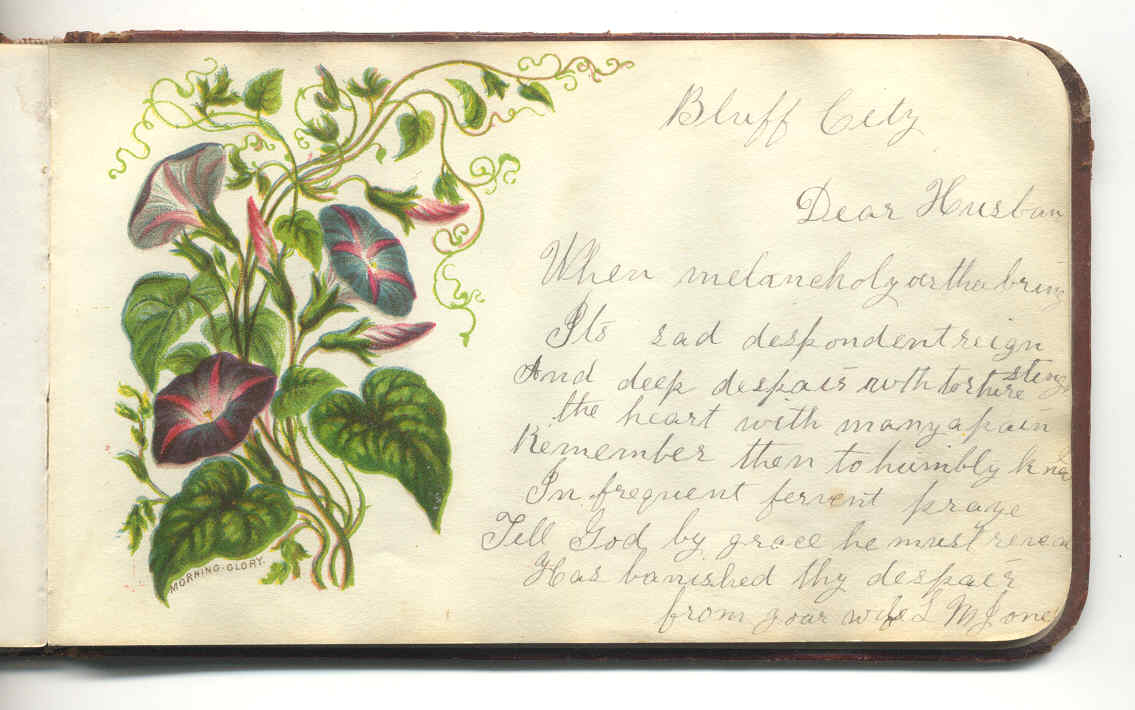 Bluff City
Dear Husban
When melancholy ortha bring
Its sad despondent reign
And deep despair with torture sting
the heart with many a pain
Remember then to humbly knee
In frequent fervent praye
Till God by grace he must reveal
Has banished thy despair
from your wife L M Jones
MORNING-GLORY.